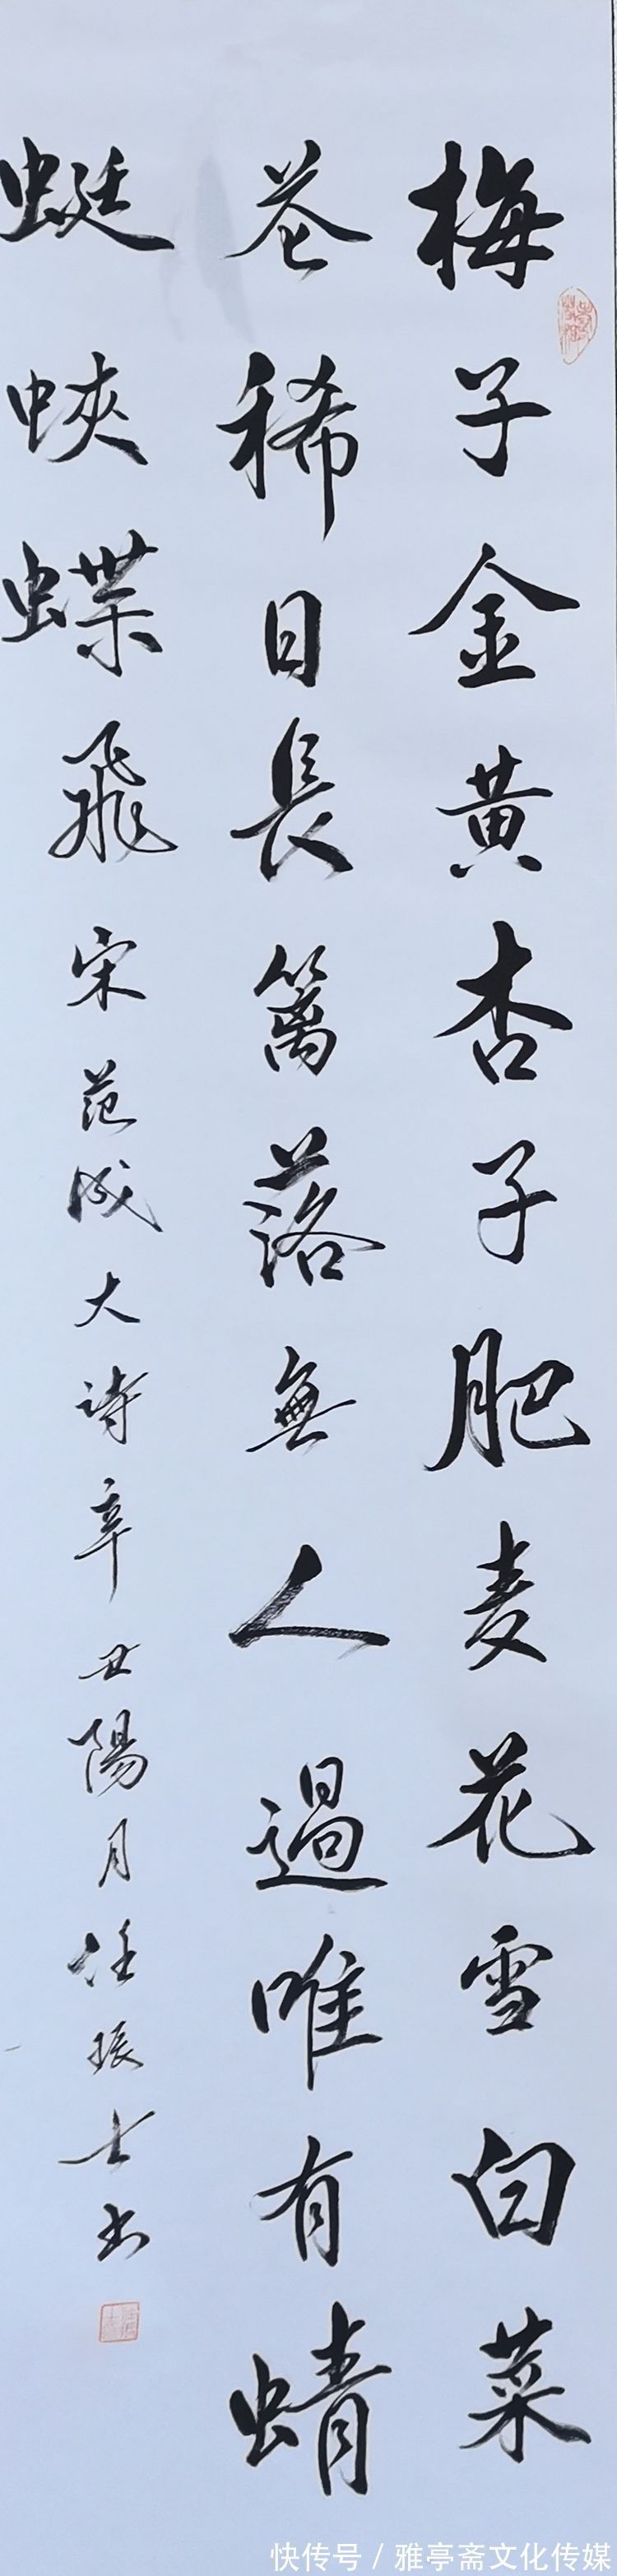 梅子金黄杏子肥麦花雪白菜
花稀日長篱落無人過唯有蜻
蜓蛱蝶飛
宋范成大诗辛丑陽月任振士书
快传号 / 雅亭斋文化传媒